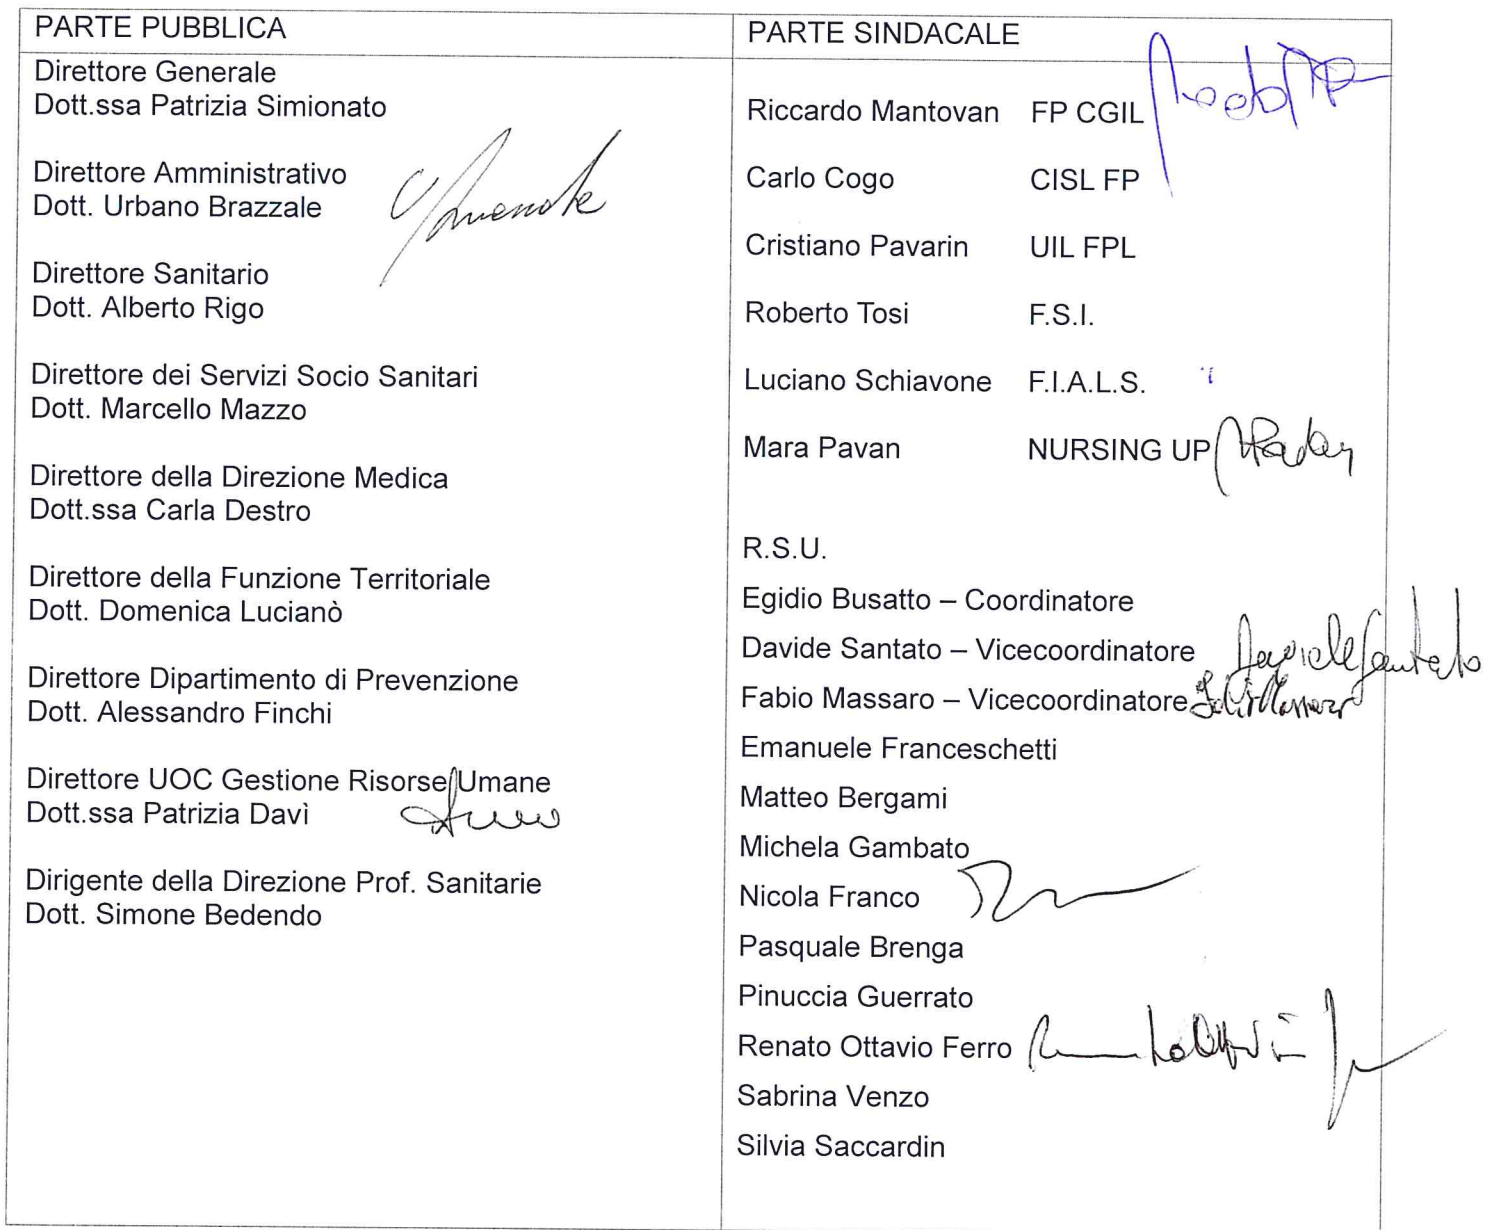 PARTE PUBBLICA
Direttore Generale
Dott.ssa Patrizia Simionato
Direttore Amministrativo
Dott. Urbano Brazzale
Direttore Sanitario
Dott. Alberto Rigo
Direttore dei Servizi Socio Sanitari
Dott. Marcello Mazzo
Direttore della Direzione Medica
Dott.ssa Carla Destro
Direttore della Funzione Territoriale
Dott. Domenica Lucianò
Direttore Dipartimento di Prevenzione
Dott. Alessandro Finchi
Direttore UOC Gestione Risorse Umane
Dott.ssa Patrizia Davì
Dirigente della Direzione Prof. Sanitarie
Dott. Simone Bedendo
PARTE SINDACALE
Riccardo Mantovan FP CGIL
Carlo Cogo CISL FP
Cristiano Pavarin UIL FPL
Roberto Tosi F.S.I.
Luciano Schiavone F.I.A.L.S.
Mara Pavan NURSING UP
R.S.U.
Egidio Busatto – Coordinatore
Davide Santato – Vicecoordinatore Davide Santato
Fabio Massaro – Vicecoordinatore Fabio Massaro
Emanuele Franceschetti
Matteo Bergami
Michela Gambato
Nicola Franco
Pasquale Brenga
Pinuccia Guerrato
Renato Ottavio Ferro
Sabrina Venzo
Silvia Saccardin